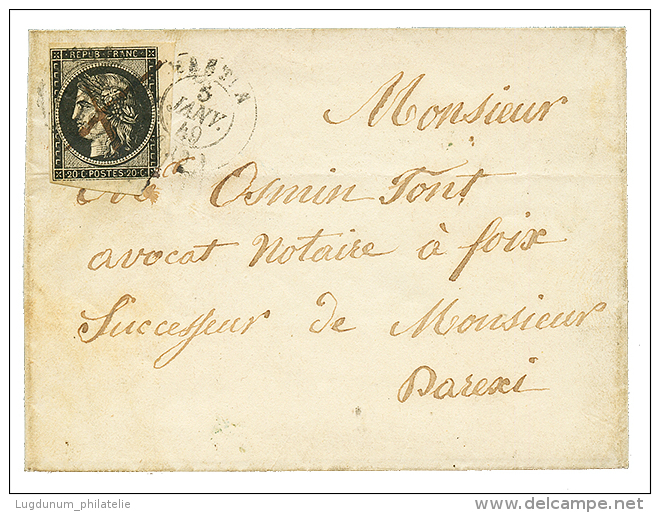 REPUB. FRANC.
5
JANV.
49
20 C POSTES 20 C
Monsieur
Osmin Font
avocat Notaire à foix
Successeur de Monsieur
Darexi
Lugdunum_philatelie
delcampe.net